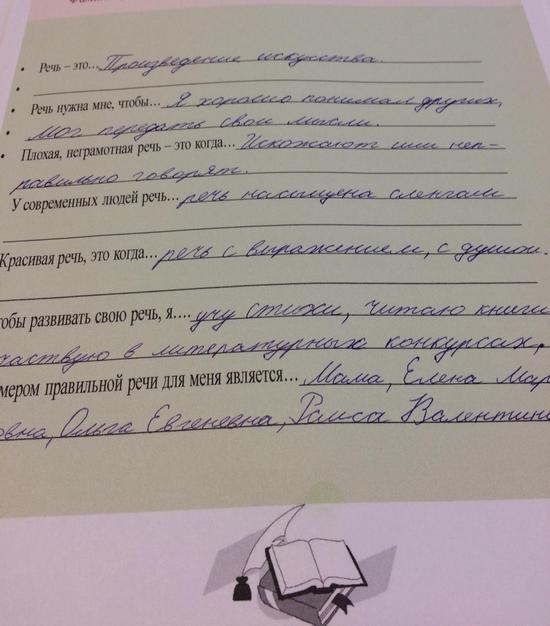 Речь – это... Произведение искусства.
Речь нужна мне, чтобы... Я хорошо понимал других,
мог передать свои мысли.
Плохая, неграмотная речь – это когда... Искожают или неп-
равильно говорят.
У современных людей речь... речь насыщена сленгами
Красивая речь, это когда... речь с выражением, с душой.
тобы развивать свою речь, я.... учу стихи, читаю книги
частвую в литературных конкурсах,
мером правильной речи для меня является... Мама, Елена Мар
овна, Ольга Евгеневна, Раиса Валентино